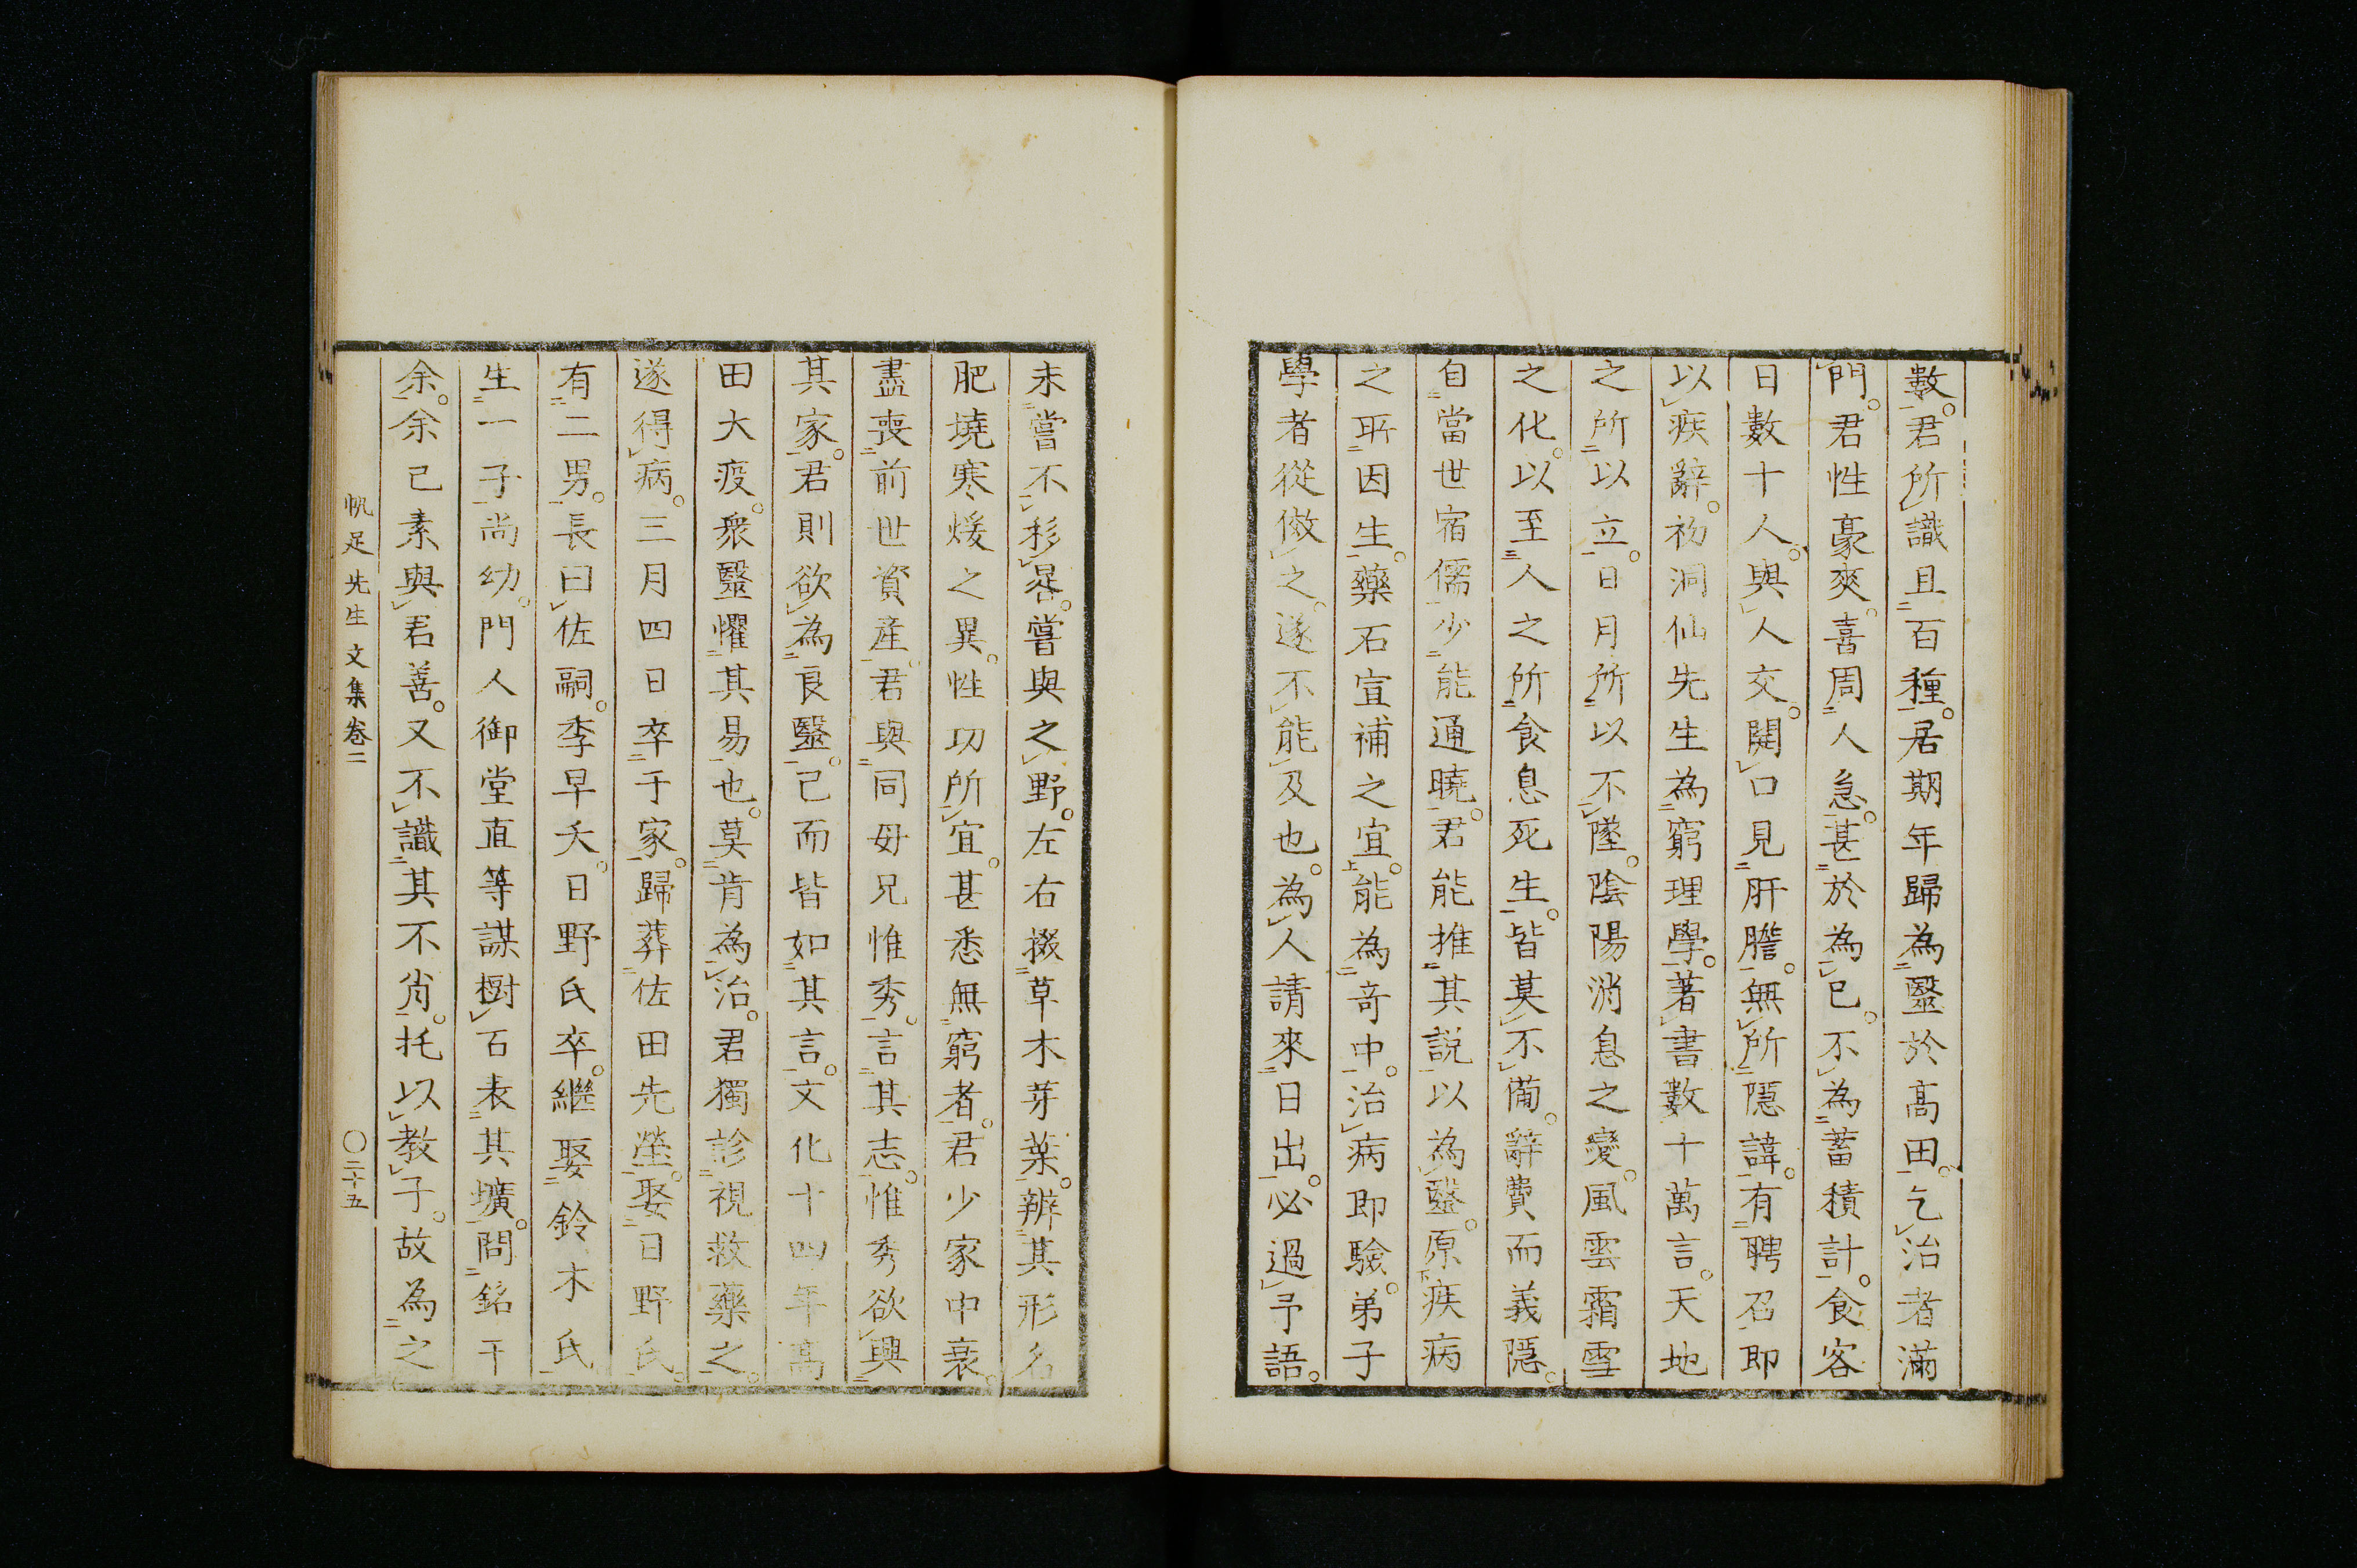 數。君所識且百種。居期年歸為醫於高田。乞治者滿
門。君性豪爽。喜周人急。甚於為己。不為蓄積計。食客
日數十人。與人交。開口見肝膽。無所隱諱。有聘召即
以疾辭。初洞仙先生為窮理學。著書數十萬言。天地
之所以立。日月所以不墜。陰陽消息之變。風雲霜雪
之化。以至人之所食息死生。皆莫不備。辭費而義隱。
自當世宿儒少能通曉。君能推其説以為醫。原疾病
之所因生。藥石宜補之宜。能為奇中。治病即驗。弟子
學者從倣之。遂不能及也。為人請來日出。必過予語。
未嘗不移晷。嘗與之野。左右掇草木芽葉。辨其形名
肥墝寒煖之異。性功所宜。甚悉無窮者。君少家中衰。
盡喪前世資產。君與同母兄惟秀。言其志。惟秀欲興
其家。君則欲為良醫。已而皆如其言。文化十四年高
田大疫。衆醫懼其易也。莫肯為治。君獨診視救藥之。
遂得病。三月四日卒于家。歸葬佐田先塋。娶日野氏。
有二男。長曰佐嗣。季早夭。日野氏卒。繼娶鈴木氏
生一子尚幼。門人御堂直等謀樹石表其壙。問銘于
余。余已素與君善。又不識其不肖。托以教子。故為之
帆足先生文集卷二 〇二十五